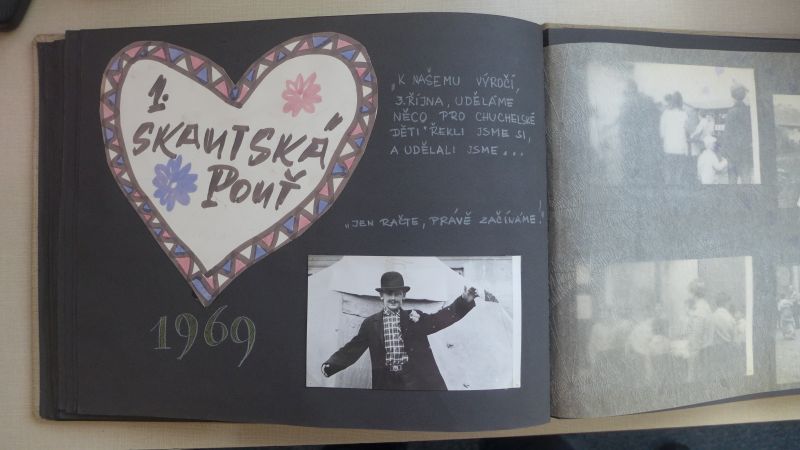 1.
SKAUTSKÁ
POUŤ
1969
„K NAŠEMU VÝROČÍ,
3. ŘÍJNA, UDĚLÁME
NĚCO PRO CHUCHELSKÉ
DĚTI" ŘEKLI JSME SI,
A UDĚLALI JSME...
„JEN RAČTE, PRÁVĚ ZAČÍNÁME!"